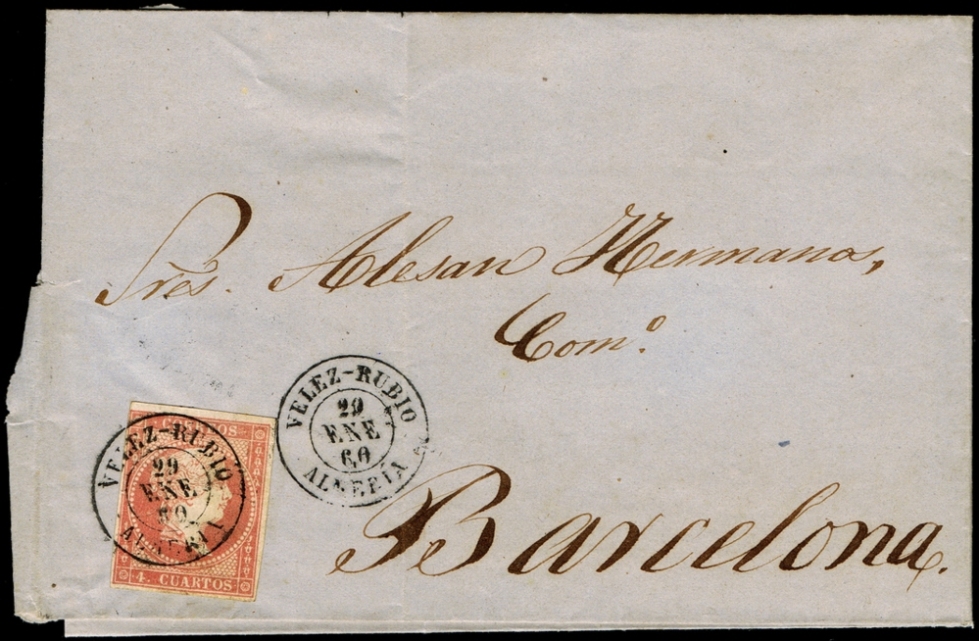 Sres. Alesan Hermanos,
Como.
VELEZ-RUBIO
29
ENE
60
ALMERIA
CORREOS
VELEZ-RUBIO
29
ENE
60
ALMERIA
4. CUARTOS
Barcelona.